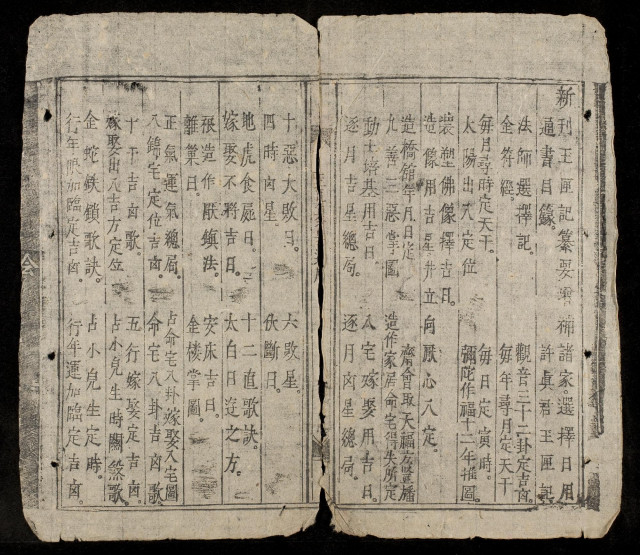 新刊玉匣記纂要群補諸家選擇日用
通書目錄
法師選擇記 許真君玉匣記
金符經 觀音三十二卦定吉凶
每月尋時定天干 每年尋月定天干
太陽出入定位 每日定寅時
彌陀作福十二年推圖
裝塑佛像擇吉日
造像用吉星并立向厭心入定
造橋舘年月日定 齋會取天福
九善三惡掌圖 造作家居命宅得失所定
動土培基用吉日 入宅嫁娶用吉日
逐月吉星總局 逐月凶星總局
十惡大敗日 六敗星
四時凶星 伏斷日
地虎食屍日 十二直歌訣
嫁娶不將吉日 太白日逰之方
張造作厭鎮法 安床日吉
離巢日 金樓掌圖
正氣運氣總局 占命宅八卦嫁娶入宅圖
八錦宅定位吉凶 命宅八卦吉凶歌
十干吉凶歌 五行嫁娶定吉凶
嫁娶出入吉方定位 占小兒生時關煞歌
金蛇鉄鎖歌訣 占小兒生定時
行年限加臨定吉凶 行年運加臨定吉凶